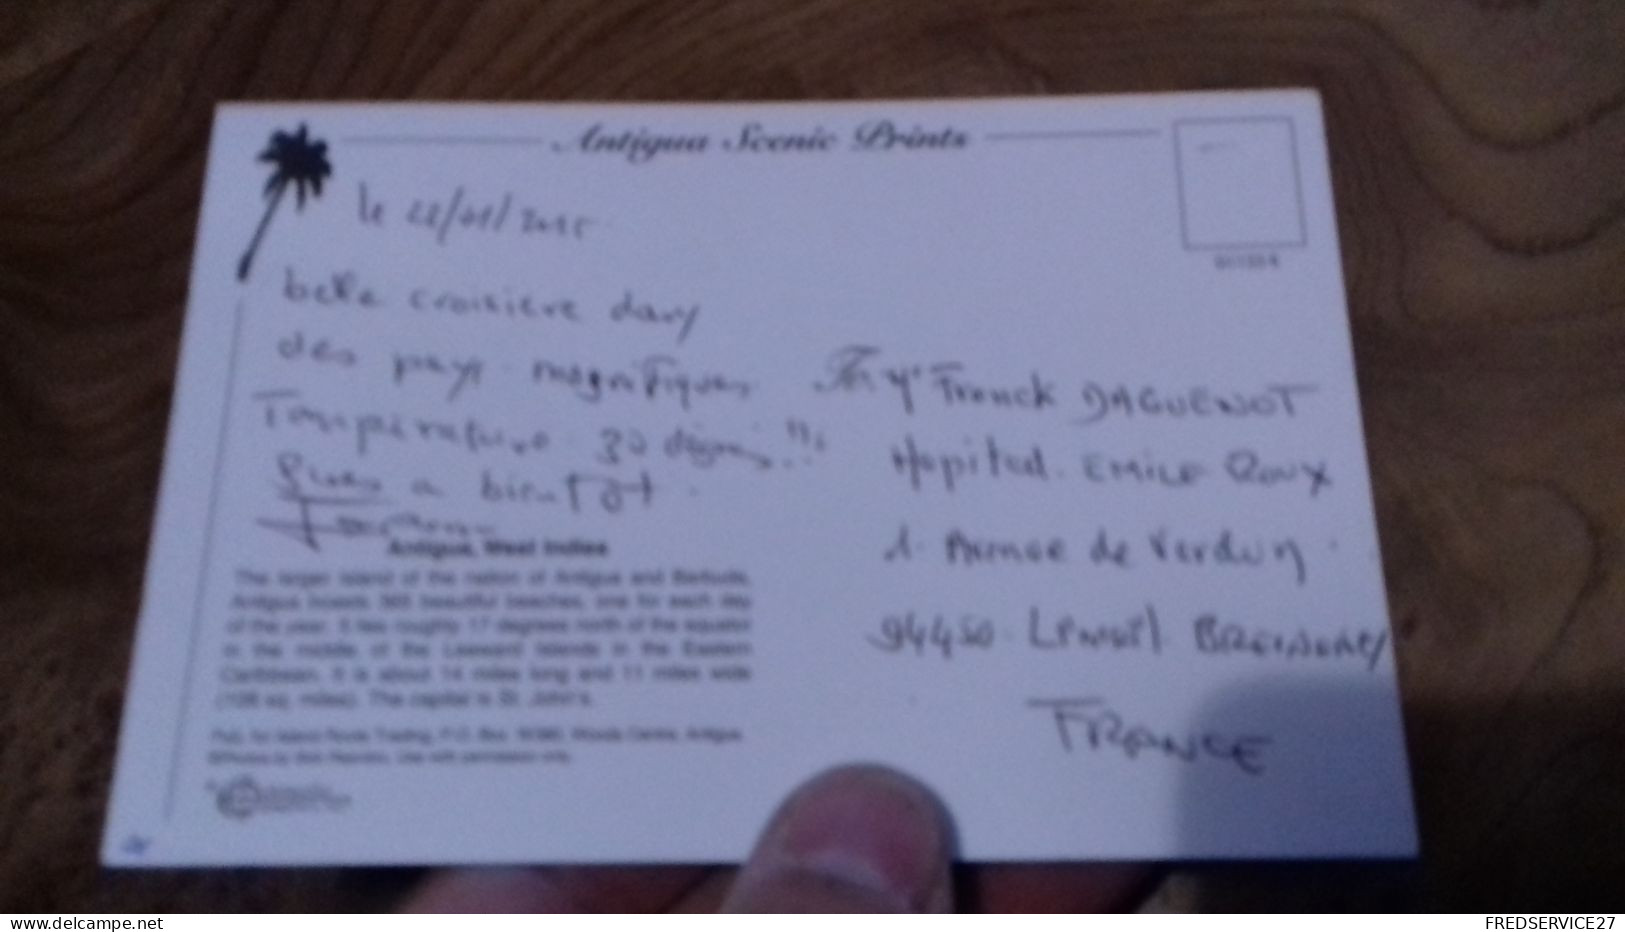 Antigua Scenic Prints
le 22/01/2015
belle croisière dans
des pays magnifiques
Température 30 degrés !!!
Bises a bientôt
Franck DAGUENOT
Hopital EMILE Roux
1 Avenue de Verdun
94450 Limeil BREVANNES
FRANCE
Antigua, West Indies
The larger island of the nation of Antigua and Barbuda,
Antigua boasts 365 beautiful beaches, one for each day
of the year. It lies roughly 17 degrees north of the equator
in the middle of the Leeward Islands in the Eastern
Caribbean. It is about 14 miles long and 11 miles wide
(108 sq. miles). The capital is St. John's.
Trading, P.O. Box Woods Centre, Antigua.
Use with permission only.
delcampe.net
FREDSERVICE27